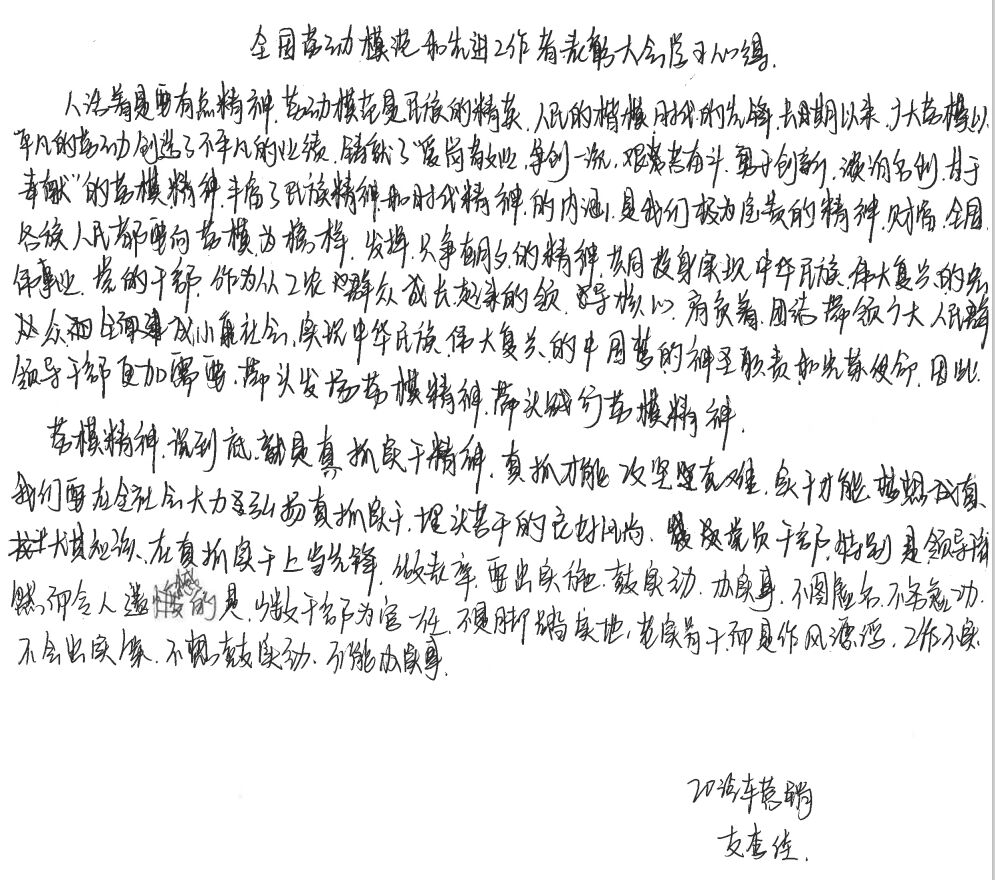 全国劳动模范和先进工作者表彰大会学习心得.
人活着是要有点精神.劳动模范是民族的精英,人民的楷模,时代的先锋,长期以来,广大劳模以
平凡的劳动创造了不平凡的业绩,铸就了"爱岗敬业,争创一流,艰苦奋斗,勇于创新,淡泊名利,甘于
奉献"的劳模精神,丰富了民族精神和时代精神的内涵,是我们极为宝贵的精神财富.全国
各族人民都要向劳模为榜样,发挥只争朝夕的精神,共同投身实现中华民族伟大复兴的宏
伟事业.党的干部,作为从工农群众成长起来的领导核心,肩负着团结带领广大人民群
众全面建成小康社会,实现中华民族伟大复兴的中国梦的神圣职责和光荣使命,因此
领导干部更加需要,带头发扬劳模精神,带头践行劳模精神.
劳模精神,说到底,就是真抓实干精神,真抓才能攻坚克难,实干才能梦想成真.
我们要在全社会大力弘扬真抓实干,埋头苦干的良好风尚.党员干部,特别是领导
在真抓实干上当先锋,做表率,要出实施,鼓实动,办实事,不图虚名,不务虚功.
然而令人遗憾的是,少数干部为官一任,不是脚踏实地,老实肯干而是作风漂浮,工作不实.
不会出实策,不想鼓实动,不能办实事.
汽车营销